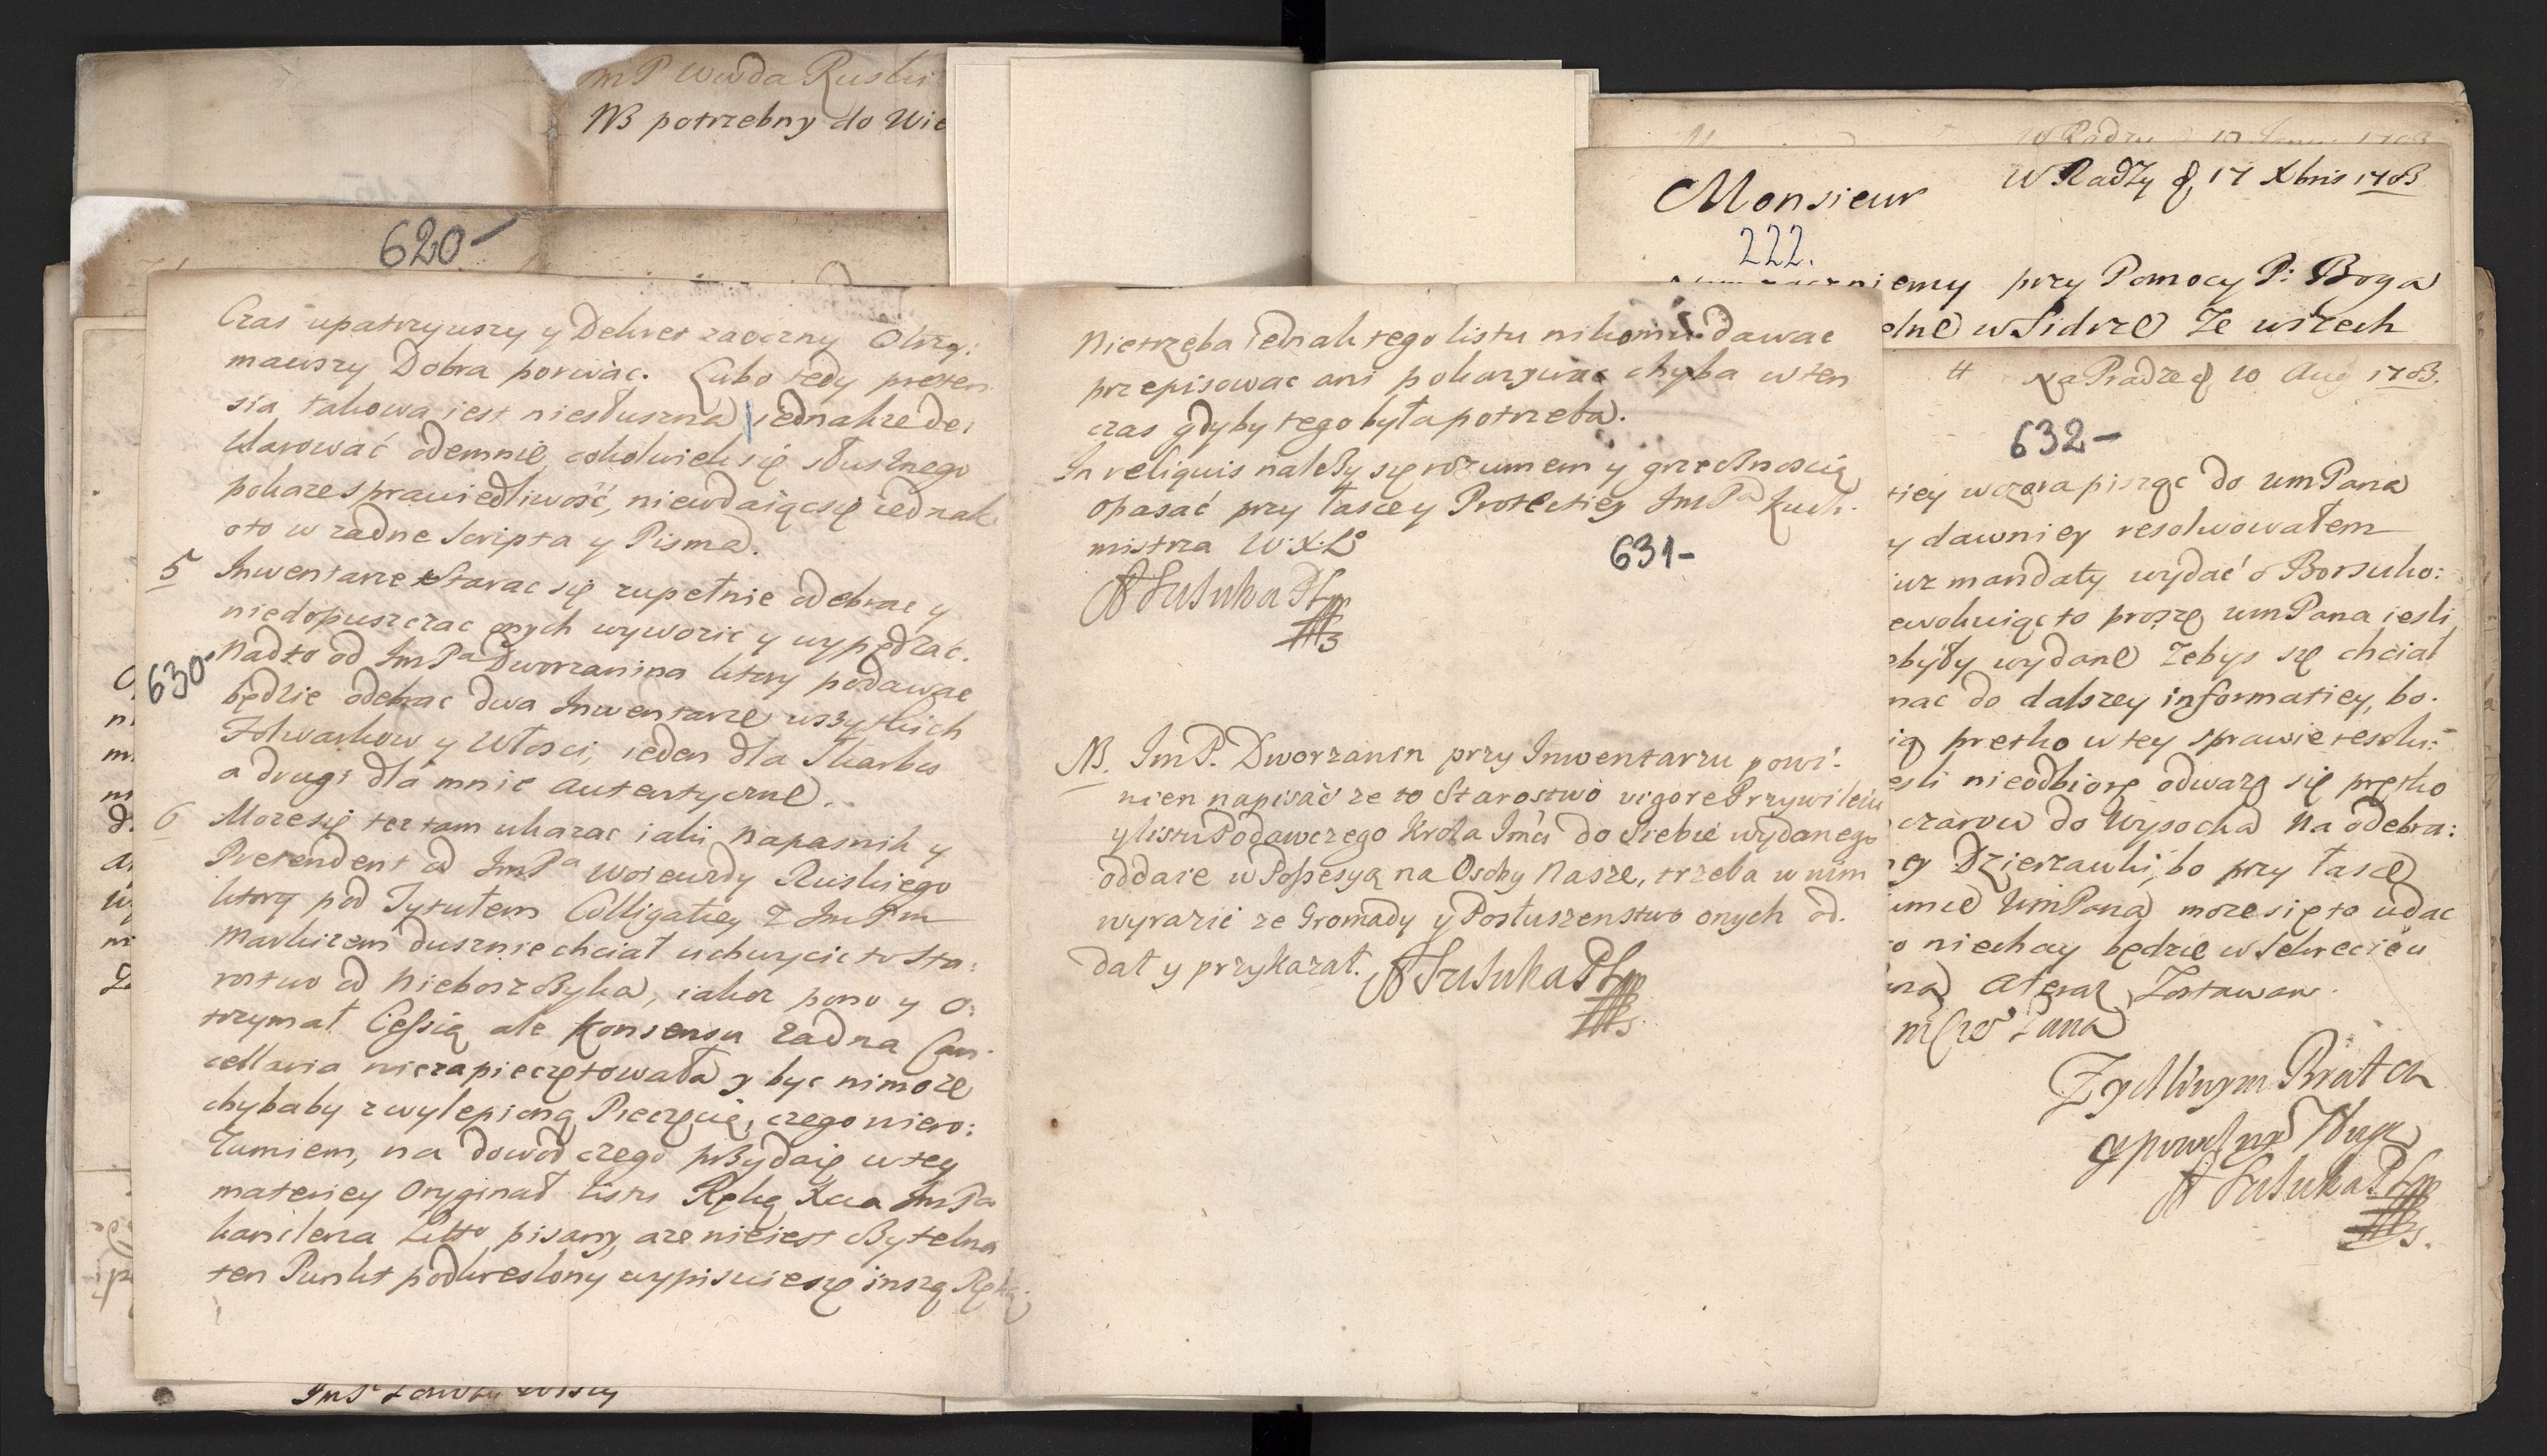 ImP Wwda Ruski
NB potrzebny do Wie
620-
Czas upatrzywszy y Dekret zaoczny Otrzy:
mawszy Dobra porwac. Lubo tedy preten
sia takowa iest niesłuszna iednakze de:
klarować odemnie cokolwiek się słusznego
pokaze sprawiedliwość, niewdaiąc się iednak
oto w zadne Scripta y Pisma.
5 Inwentarze Starac się zupełnie odebrac y
niedopuszczac onych wywozic y wypędzac.
Nadto od ImPa Dworzanina ktory podawac
630-
będzie odebrac dwa Inwentarze wszytkich
Folwarkow y Włosci, ieden dla Skarbu
a drugi dla mnie autentyczne.
6 Moze się tez tam ukazac iaki napasnik y
Pretendent od ImPa Woiewody Ruskiego
ktory pod Tytułem Colligatiey Z ImPm
Markizem dusznie chciał uchwycic to Sta:
rostwo od Nieboszczyka, iakoz pono y o:
trzymał Cessią ale Konsensu zadna Can
cellaria niezapieczętowała y byc nimoze
chybaby z wylepioną Pieczęcią, czego niero:
zumiem, na dowod czego przydaię w tey
materiey Oryginał listu Ręką Xcia ImPa
kanclerza Litto pisany, aze nieiest Czytelna
ten Punkt podkreslony wypisuie się inszą Ręką.
Nietrzeba iednak tego listu nikomu dawac
przepisowac ani pokazywac chyba w ten
czas gdyby tego była potrzeba.
In reliquis nalezy się rozumem y grzecznoscią
opasać przy łascey Protectiey ImPa Kuch.
mistrza W.X.L.
631-
NB. ImP. Dworzanin przy Inwentarzu powi:
nien napisać ze to Starostwo vigore Przywileiu
y listu Podawczego Krola Imci do Siebie wydanego
oddaie w Possesyą na Osoby Nasze, trzeba w nim
wyrazić ze Gromady y Posłuszenstwo onych od.
dał y przykazał.
W Radzy d 17 Xbris 1703
Monsieur
222.
niemy przy Pomocy P: Boga
elne w Sidrze Ze wszech
Na Pradze d 10 Aug 1703.
632-
tiey wczora pisząc do WmPana
y dawniey resolwowałem
iuz mandaty wydać o Borsuko:
ewokuiąc to proszę WmPana iesli
ebyły wydane Zebys się chciał
nac do dalszey informatiey, bo.
ią prętko w tey sprawie resolu:
esli nieodbiorę odwazę się prętko
czarow do Wysocka Na odebra:
ey Dzierzawki, bo przy łasce
WmPana moze się to udac
o niechay będzie w Sekrecie u
ana A teraz Zostawam
Pana
Zyczliwym Bratem
y powolnym Sługą